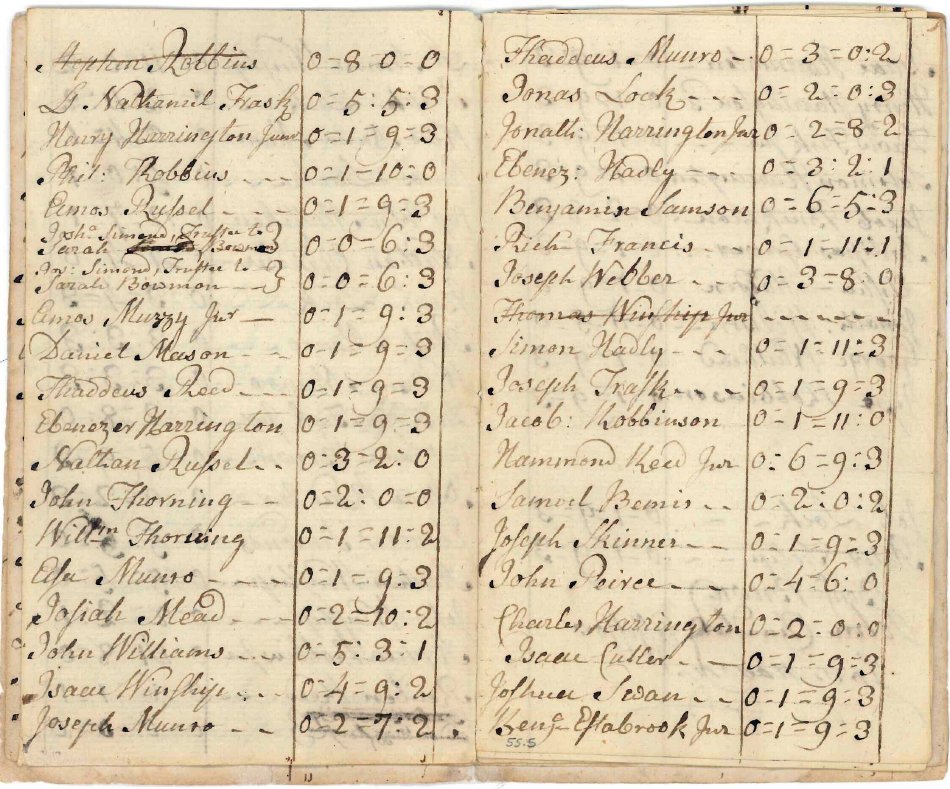 Stephen Robbins 0=8=0=0
Lt Nathaniel Trask 0=5:5:3
Henry Harrington Junr 0=1=9=3
Phil: Robbins 0=1=10=0
Amos Russel 0=1=9=3
Josha. Simond, Trustee to
Sarah Bowmon 0=0=6:3
Jos: Simond, Trustee to
Sarah Bowmon 0=0=6:3
Amos Muzzy Jur 0=1=9:3
Daniel Mason 0=1=9=3
Thaddeus Reed 0=1=9=3
Ebenezer Harrington 0=1=9=3
Nathan Russel 0=3=2:0
John Thorning 0=2:0=0
Willm Thorning 0=1=11:2
Asa Munro 0=1=9:3
Josiah Mead 0=2=10:2
John Williams 0=5:3:1
Isaac Winship 0=4=9:2
Joseph Munro 0=2=7:2
Thaddeus Munro 0=3=0:2
Jonas Lock 0=2=0:3
Jonath: Harrington Jur 0=2=8=2
Ebenez: Hadly 0=3:2:1
Benjamin Samson 0=6=5:3
Rich Francis 0=1=11:1
Joseph Webber 0=3=8=0
Thomas Winship Jur
Simon Hadly 0=1=11:3
Joseph Trask 0=1=9=3
Jacob: Robbinson 0=1=11:0
Hammond Reed Jur 0:6=9:3
Samuel Bemis 0=2:0:2
Joseph Skinner 0=1=9=3
John Peirce 0=4=6:0
Charles Harrington 0=2=0:0
Isaac Cutler 0=1=9=3
Joshua Swan 0=1=9=3
Benj. Estabrook Jur 0=1=9=3
55.5